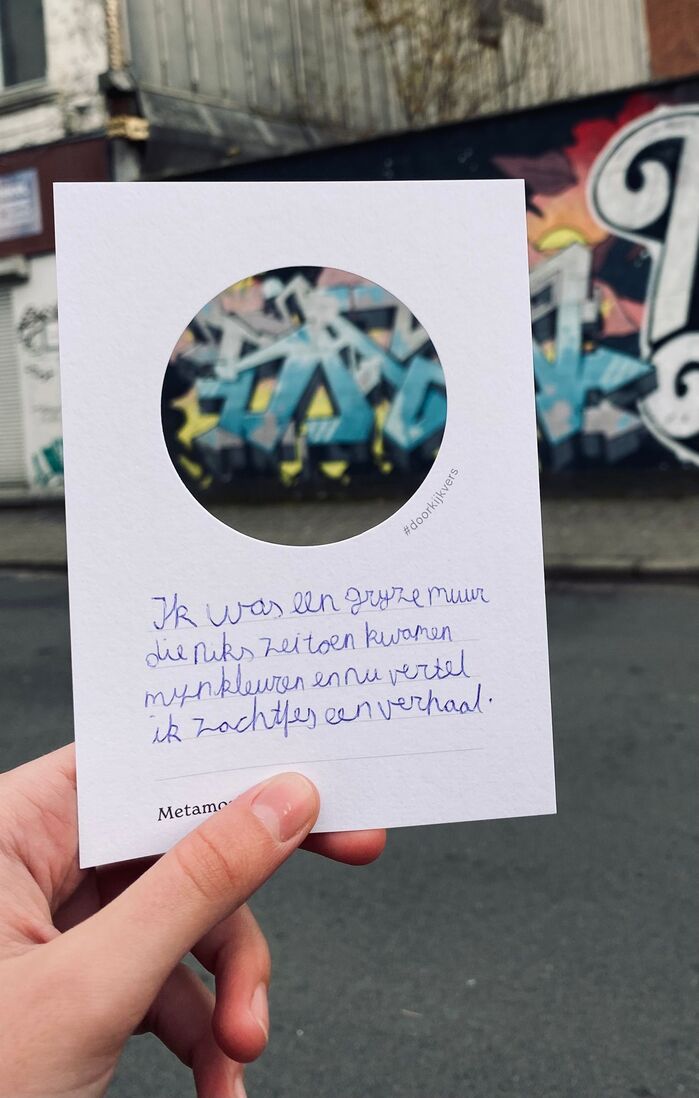 #doorkijkvers
Ik was een gryze muur
die niks zei toen kwamen
myn kleuren en nu vertel
ik zachtjes een verhaal.
Metamo